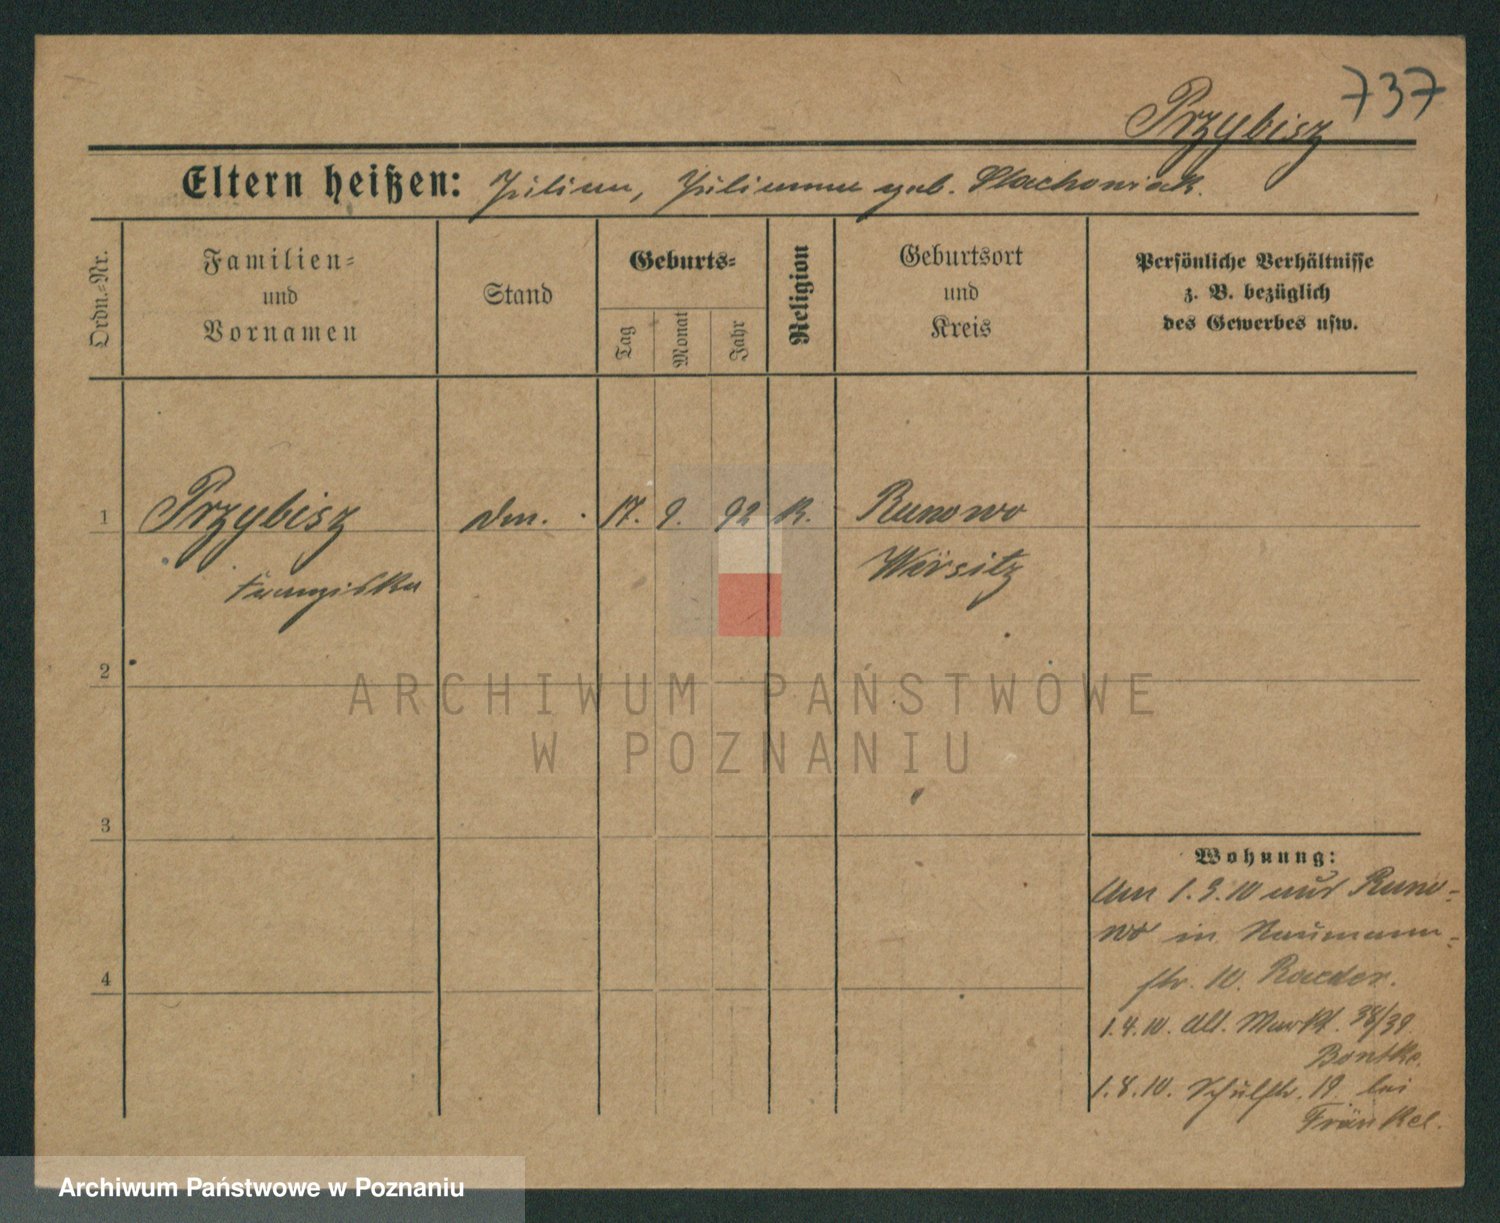 737
Przybisz
Eltern heißen: Julian, Julianna geb. Stachowiak.
Ordn.-Nr.
Familien-
und
Vornamen
Stand
Geburts-
Tag
Monat
Jahr
Religion
Geburtsort
und
Kreis
Persönliche Verhältnisse
z. B. bezüglich
des Gewerbes usw.
1 Przybisz 17. 9. 92 K. Runowo
Franziska Wirsitz
2
3
4
Wohnung:
Am 1.3.10 aus Runo-
wo in Naumann-
str. 10. Raeder.
1.4.10. Alt. Markt. 38/39
Bontke.
1.8.10. Schulstr. 19 bei
Fränkel.
ARCHIWUM PAŃSTWOWE
W POZNANIU
Archiwum Państwowe w Poznaniu